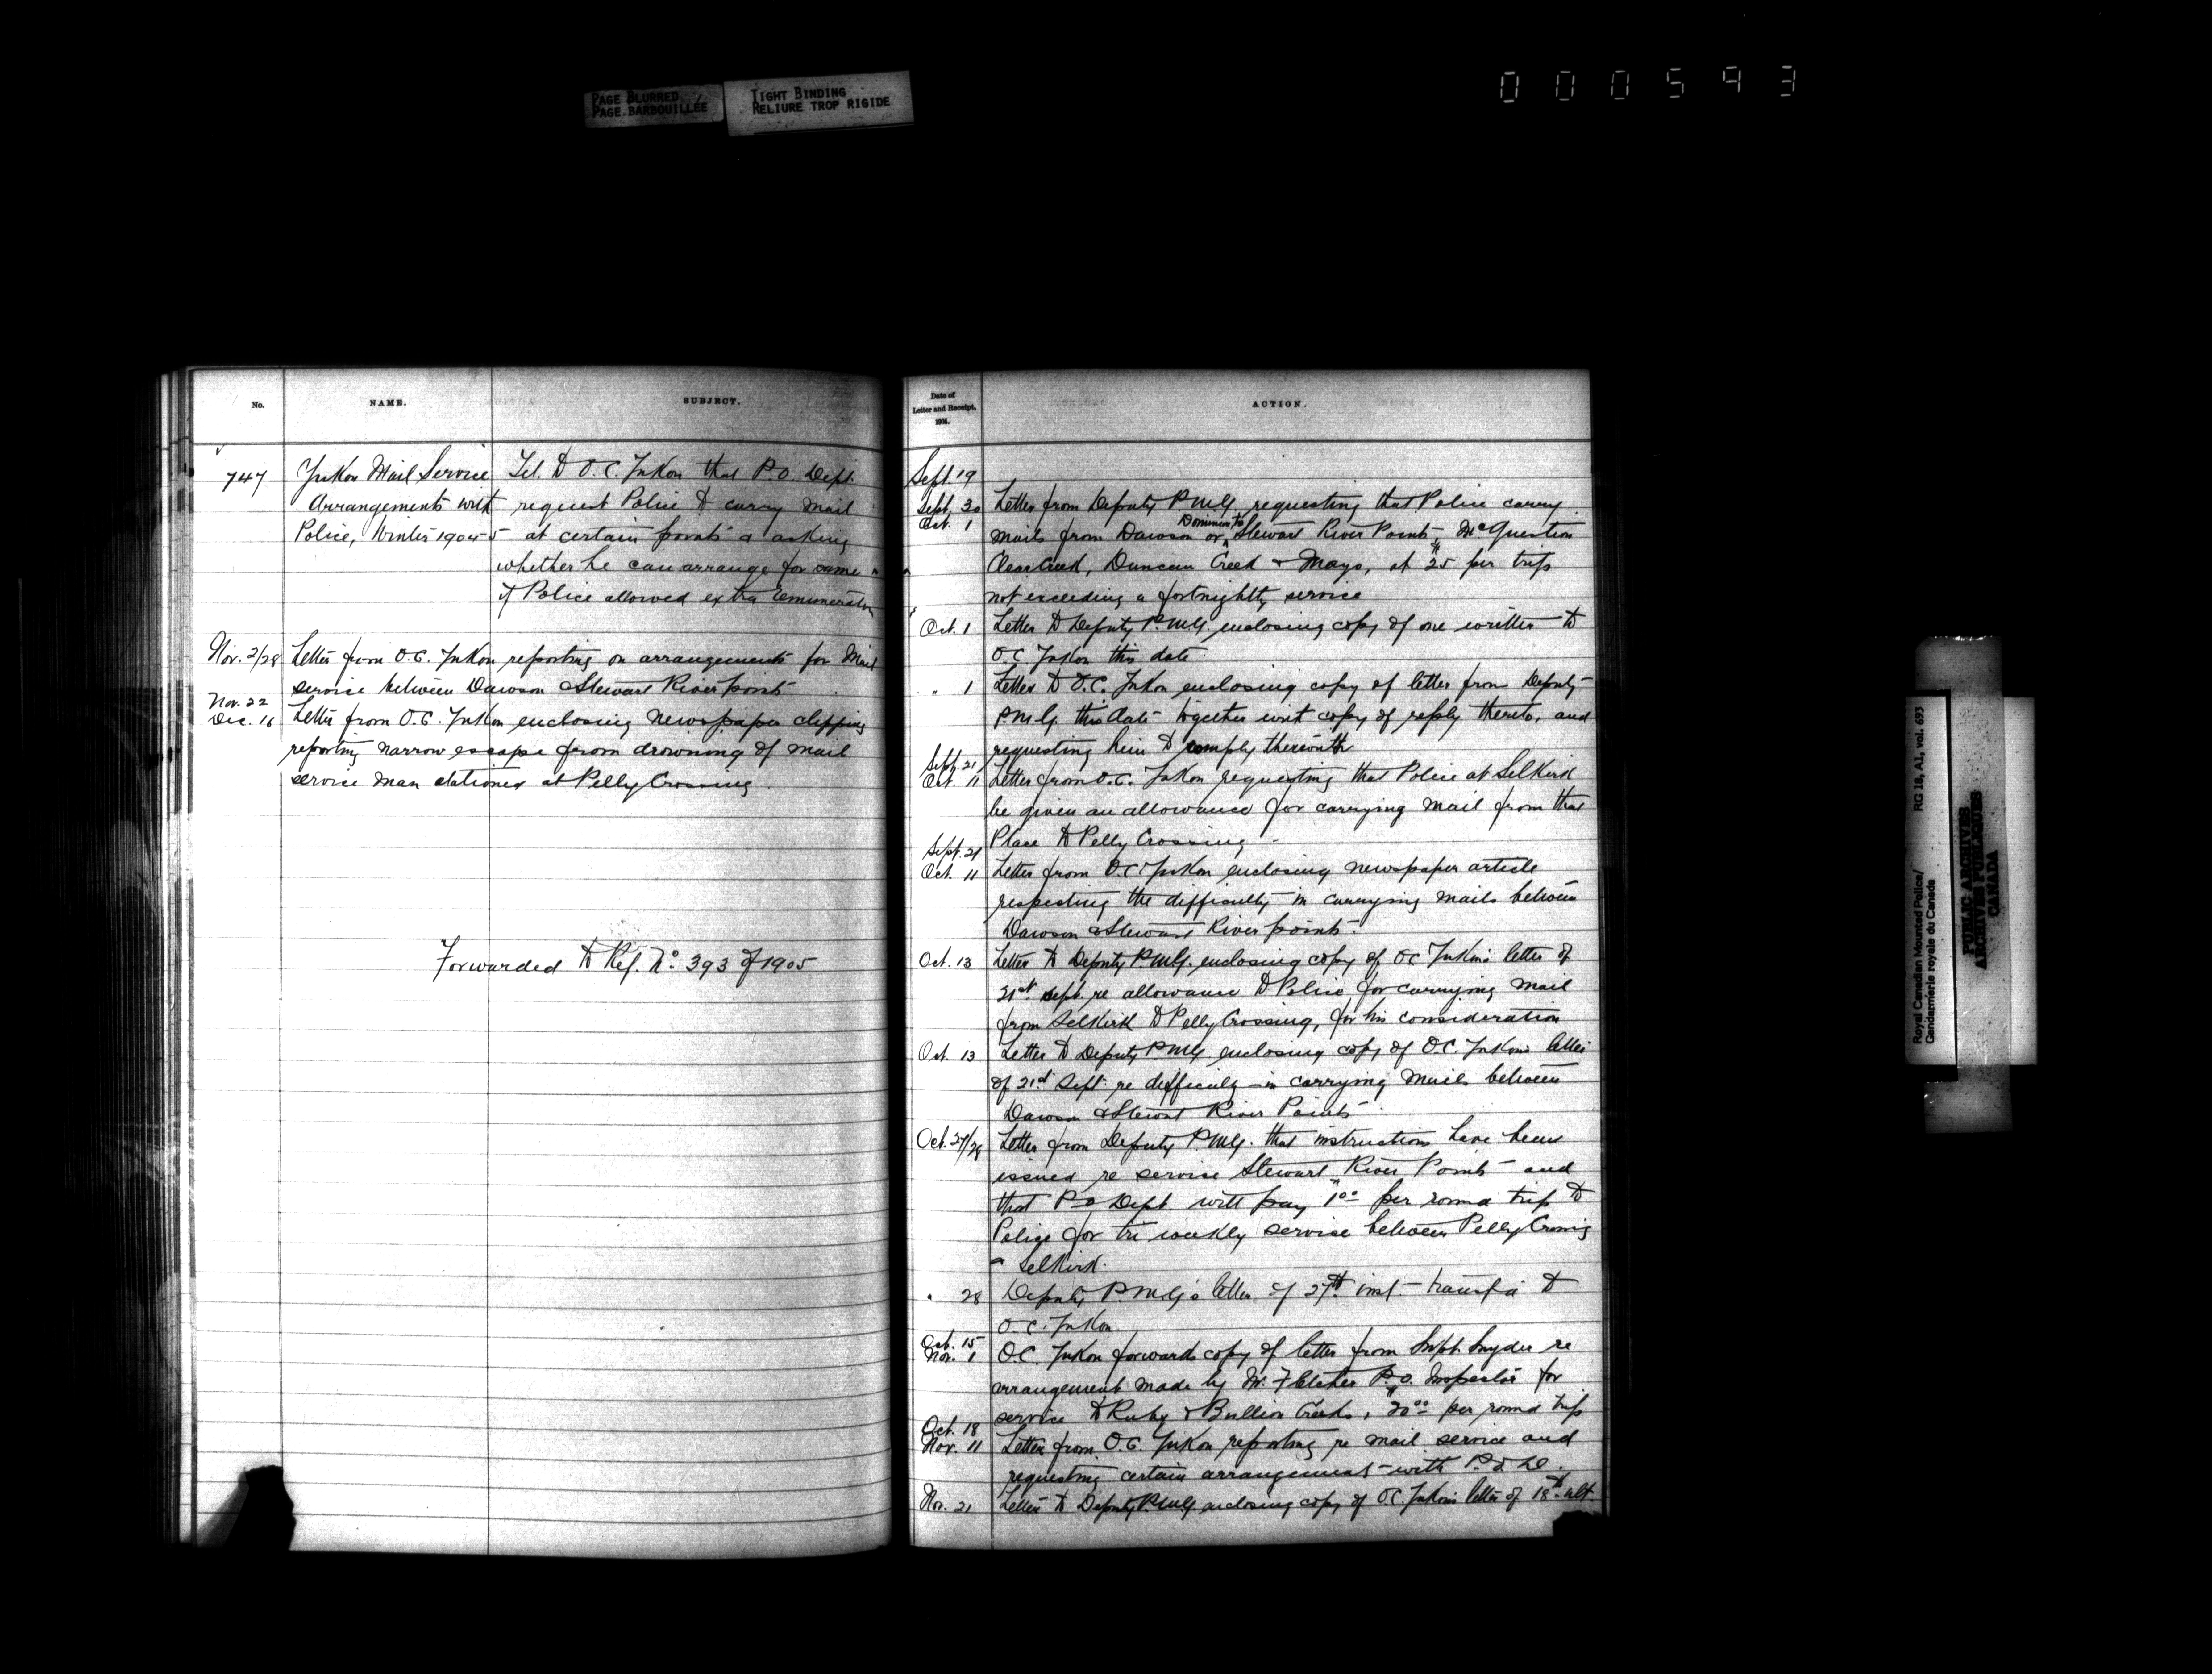 PAGE BLURRED
PAGE BARBOUILLÉE
TIGHT BINDING
RELIURE TROP RIGIDE
000593
No.
NAME.
SUBJECT.
747
Yukon Mail Service
Arrangements with
Police, Winter 1904-5
Tel. to O.C. Yukon that P.O. Dept.
request Police to carry mail
at certain points & asking
whether he can arrange for same
if Police allowed extra remuneration
Nov. 2/28 Letter from O.C. Yukon reporting on arrangements for Mail
service between Dawson & Stewart River points
Nov. 22
Dec. 16 Letter from O.C. Yukon enclosing newspaper clipping
reporting narrow escape from drowning of mail
service man stationed at Pelly Crossing.
Forwarded to Ref. No. 393 of 1905
Date of
Letter and Receipt,
1904.
ACTION.
Sept. 19
Sept. 30 Letter from Deputy P.M.G. requesting that Police carry
Oct. 1
Dominion to
mails from Dawson or Stewart River Points, McQuestion
Clear Creek, Duncan Creek & Mayo, at $25 per trip
not exceeding a fortnightly service
Oct. 1 Letter to Deputy P.M.G. enclosing copy of one written to
O.C. Yukon this date.
" 1 Letter to O.C. Yukon enclosing copy of letter from Deputy
P.M.G. this date together with copy of reply thereto, and
requesting him to comply therewith
Sept. 21
Oct. 11 Letter from O.C. Yukon requesting that Police at Selkirk
be given an allowance for carrying mail from that
Place to Pelly Crossing
Sept. 21
Oct. 11 Letter from O.C. Yukon enclosing newspaper article
respecting the difficulty in carrying mails between
Dawson & Stewart River points.
Oct. 13 Letter to Deputy P.M.G. enclosing copy of O.C. Yukon's letter of
21st Sept. re allowance to Police for carrying mail
from Selkirk to Pelly Crossing, for his consideration
Oct. 13 Letter to Deputy P.M.G. enclosing copy of O.C. Yukon's letter
of 21st Sept. re difficulty in carrying mails between
Dawson & Stewart River Points.
Oct. 27/28 Letter from Deputy P.M.G. that instructions have been
issued re service Stewart River Points and
that P.O. Dept. will pay $1.00 per round trip to
Police for tri weekly service between Pelly Crossing
& Selkirk.
" 28 Deputy P.M.G's letter of 27th inst. to
O.C. Yukon.
Oct. 15
Nov. 1 O.C. Yukon forwards copy of letter from Supt. Snyder re
arrangement made by Mr. Fletcher P.O. Inspector for
service to Ruby & Bullion Creeks, $20.00 per round trip
Oct. 18
Nov. 11 Letter from O.C. Yukon reporting re mail service and
requesting certain arrangement with P.O.D.
Nov. 21 Letter to Deputy P.M.G. enclosing copy of O.C. Yukon's letter of 18th ult.
Royal Canadian Mounted Police/
Gendarmerie royale du Canada
RG 18, A1, vol. 693
PUBLIC ARCHIVES
ARCHIVES PUBLIQUES
CANADA